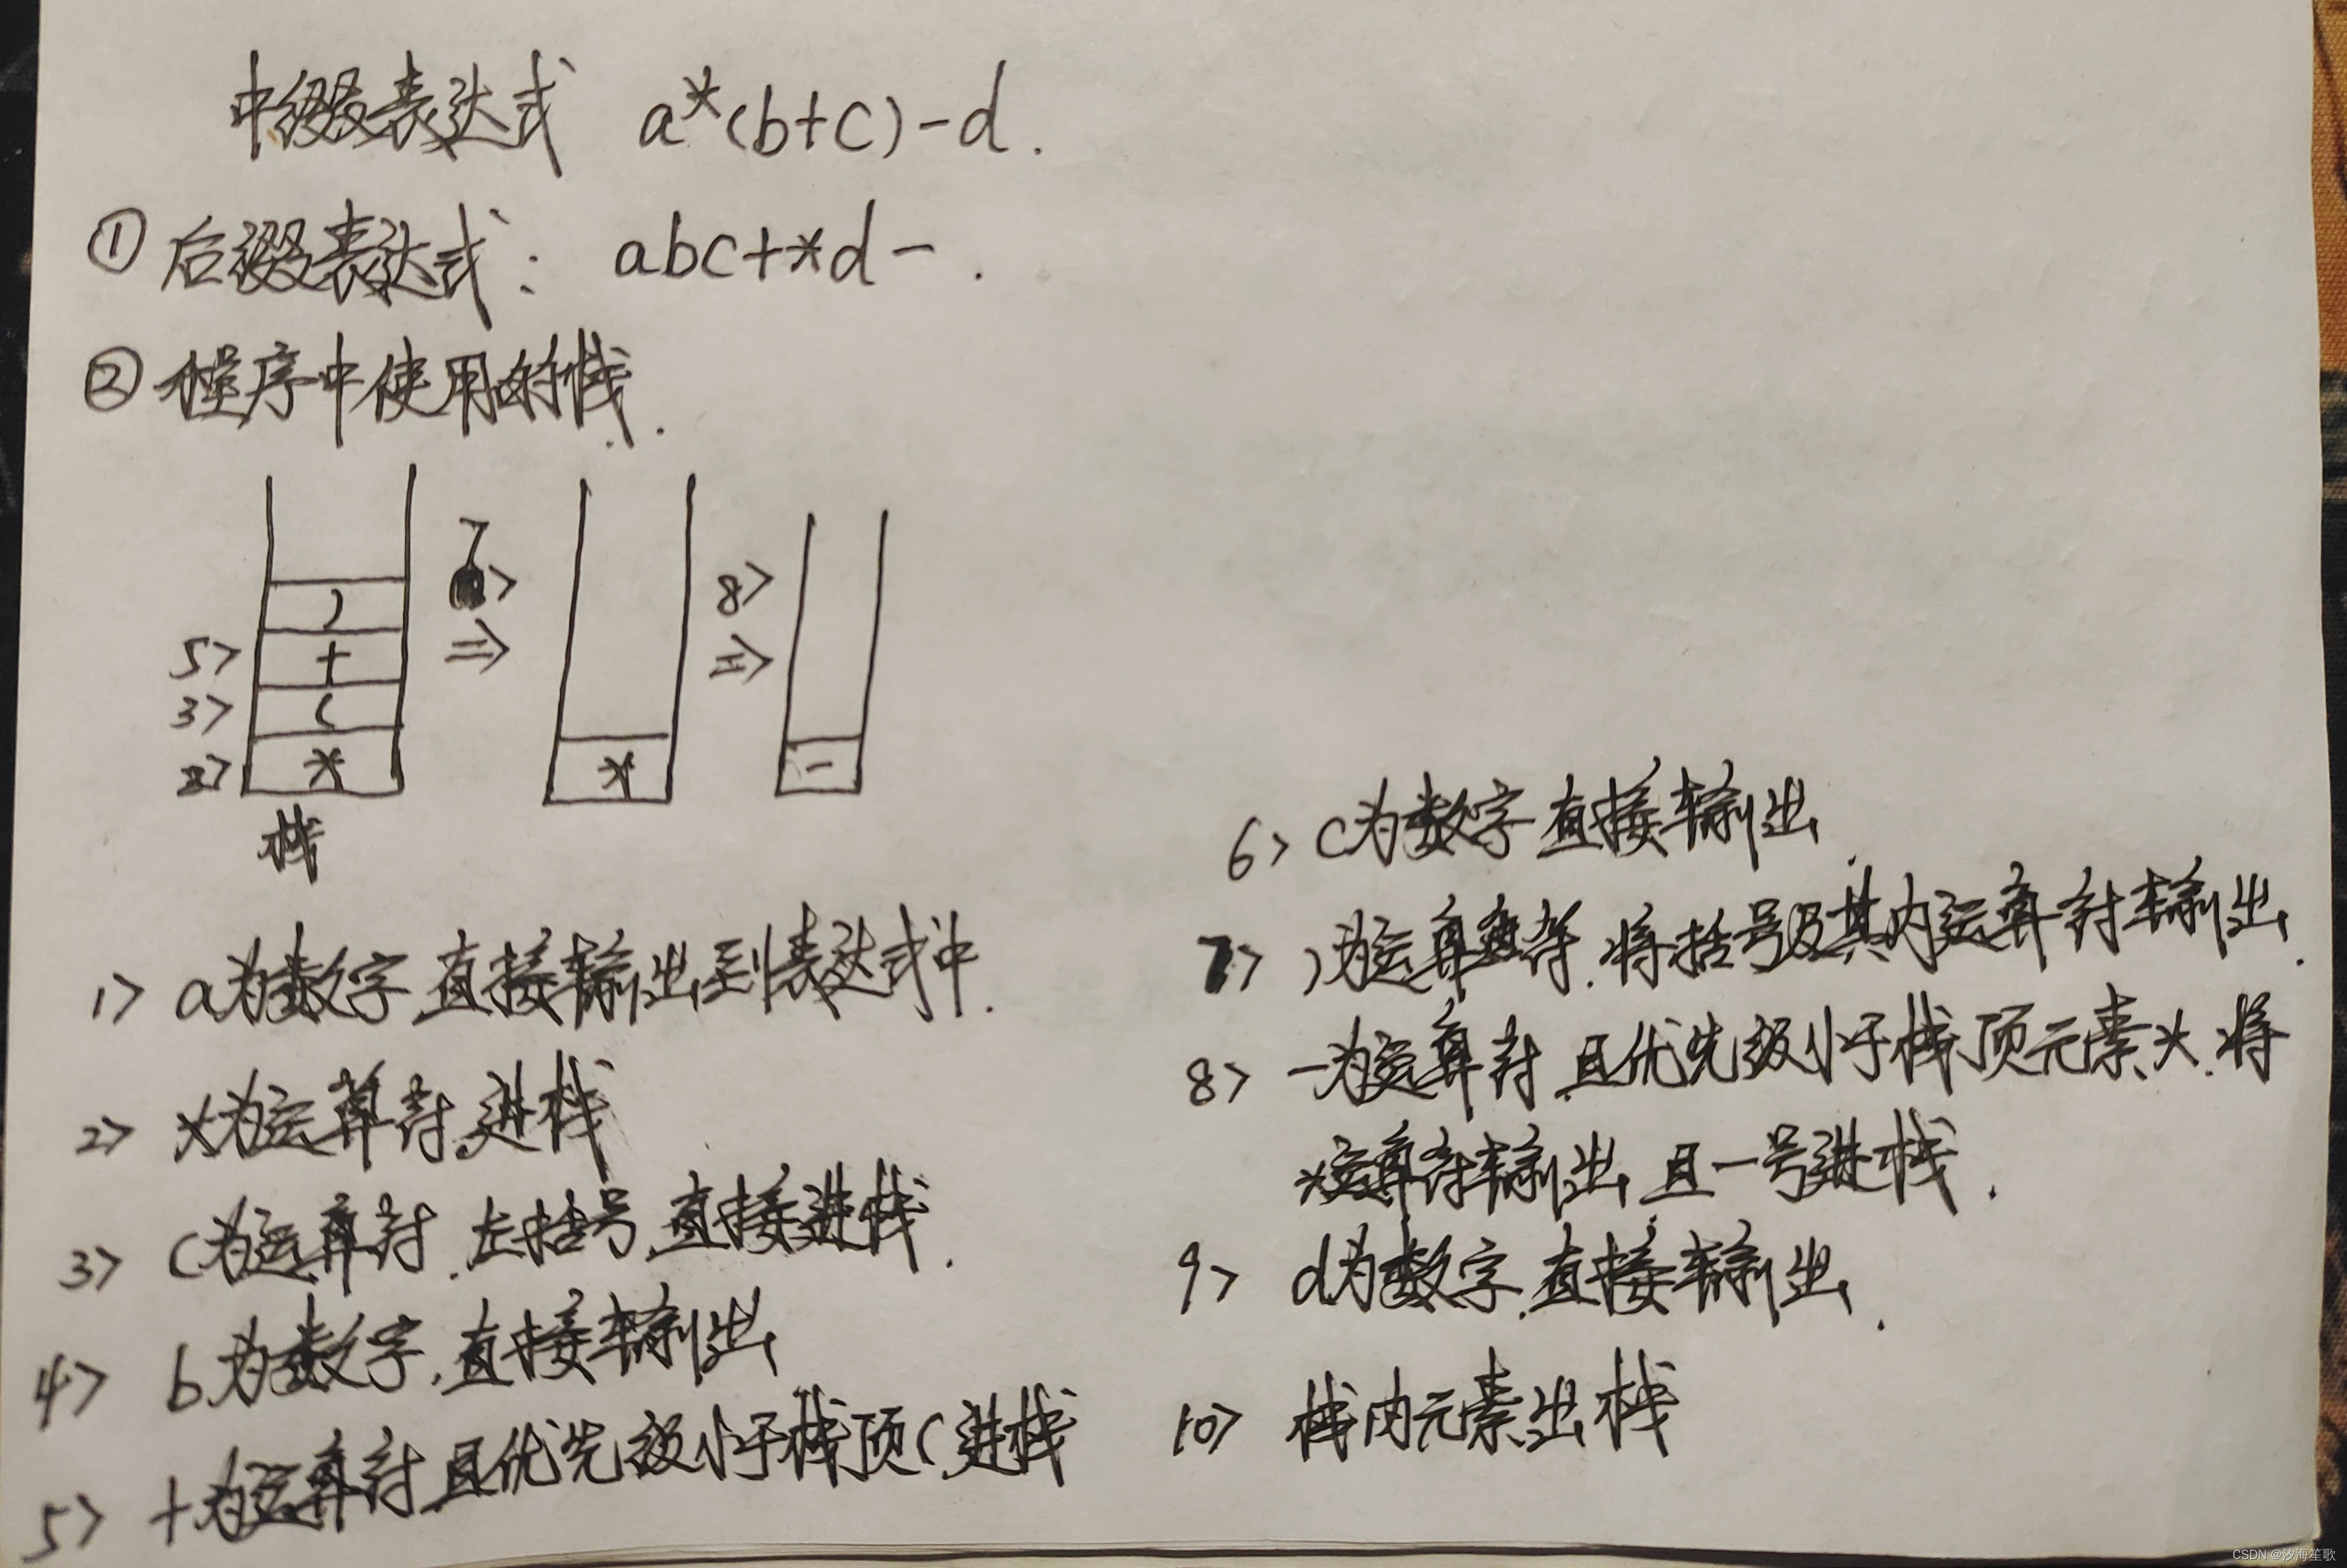 中缀表达式 a*(b+c)-d.
① 后缀表达式: abc+*d-.
② 程序中使用的栈.
)
5> +
3> (
2> *
栈
7>
=>
*
8>
=>
-
1> a为数字,直接输出到表达式中.
2> *为运算符,进栈
3> (为运算符,左括号,直接进栈.
4> b为数字,直接输出
5> +为运算符,且优先级小于栈顶(,进栈
6> c为数字,直接输出.
7> )为运算符,将括号及其内运算符输出.
8> -为运算符,且优先级小于栈顶元素*,将
*运算符输出,且-号进栈.
9> d为数字,直接输出.
10> 栈内元素出栈
CSDN @汐海笙歌